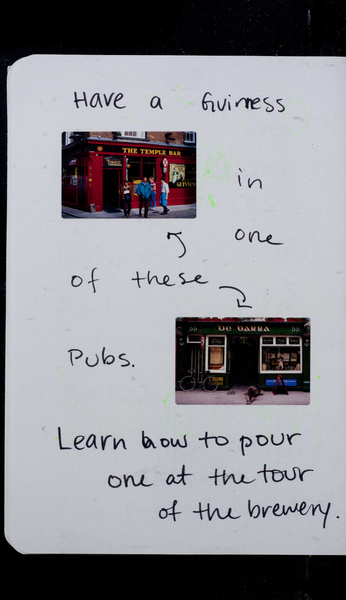 Have a Guinness
THE TEMPLE BAR
in
one
of these
DE BARRA
Pubs.
Learn how to pour
one at the tour
of the brewery.